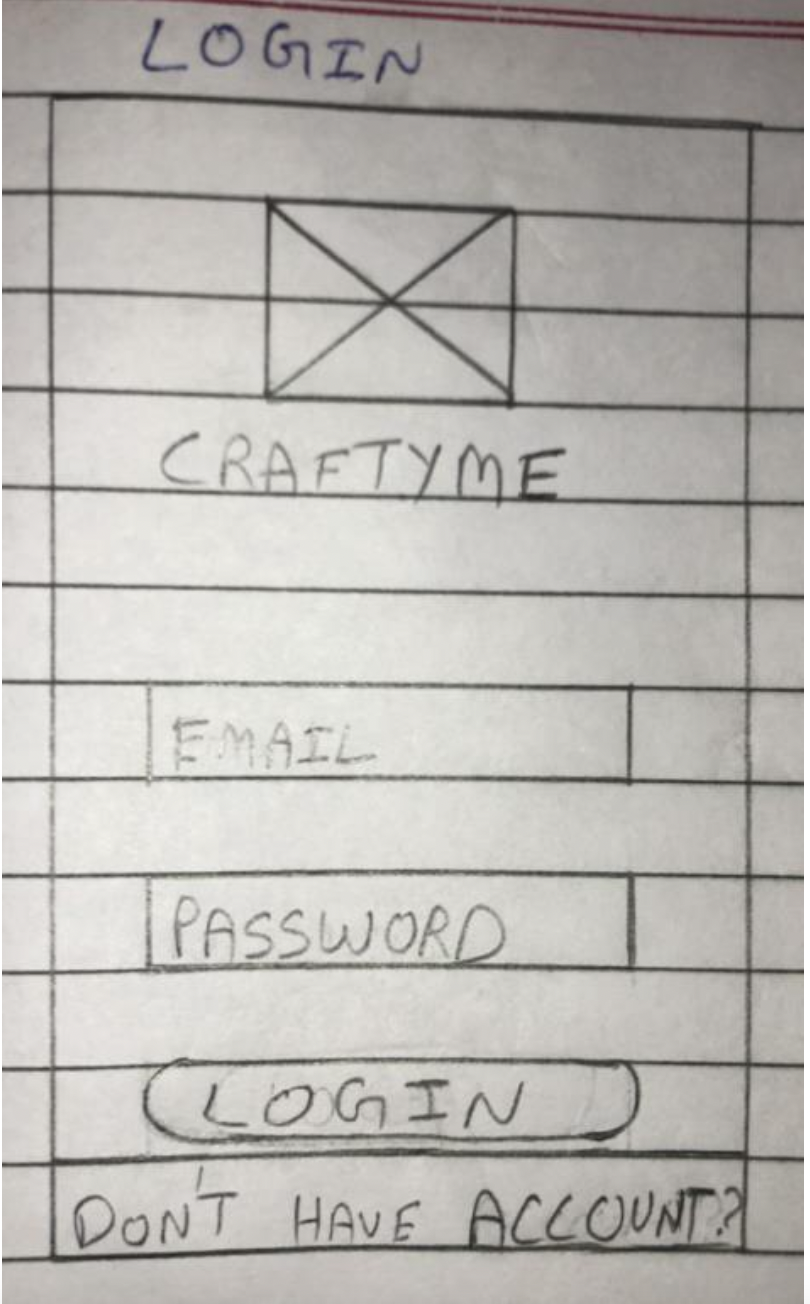 LOGIN
CRAFTYME
EMAIL
PASSWORD
LOGIN
DON'T HAVE ACCOUNT?